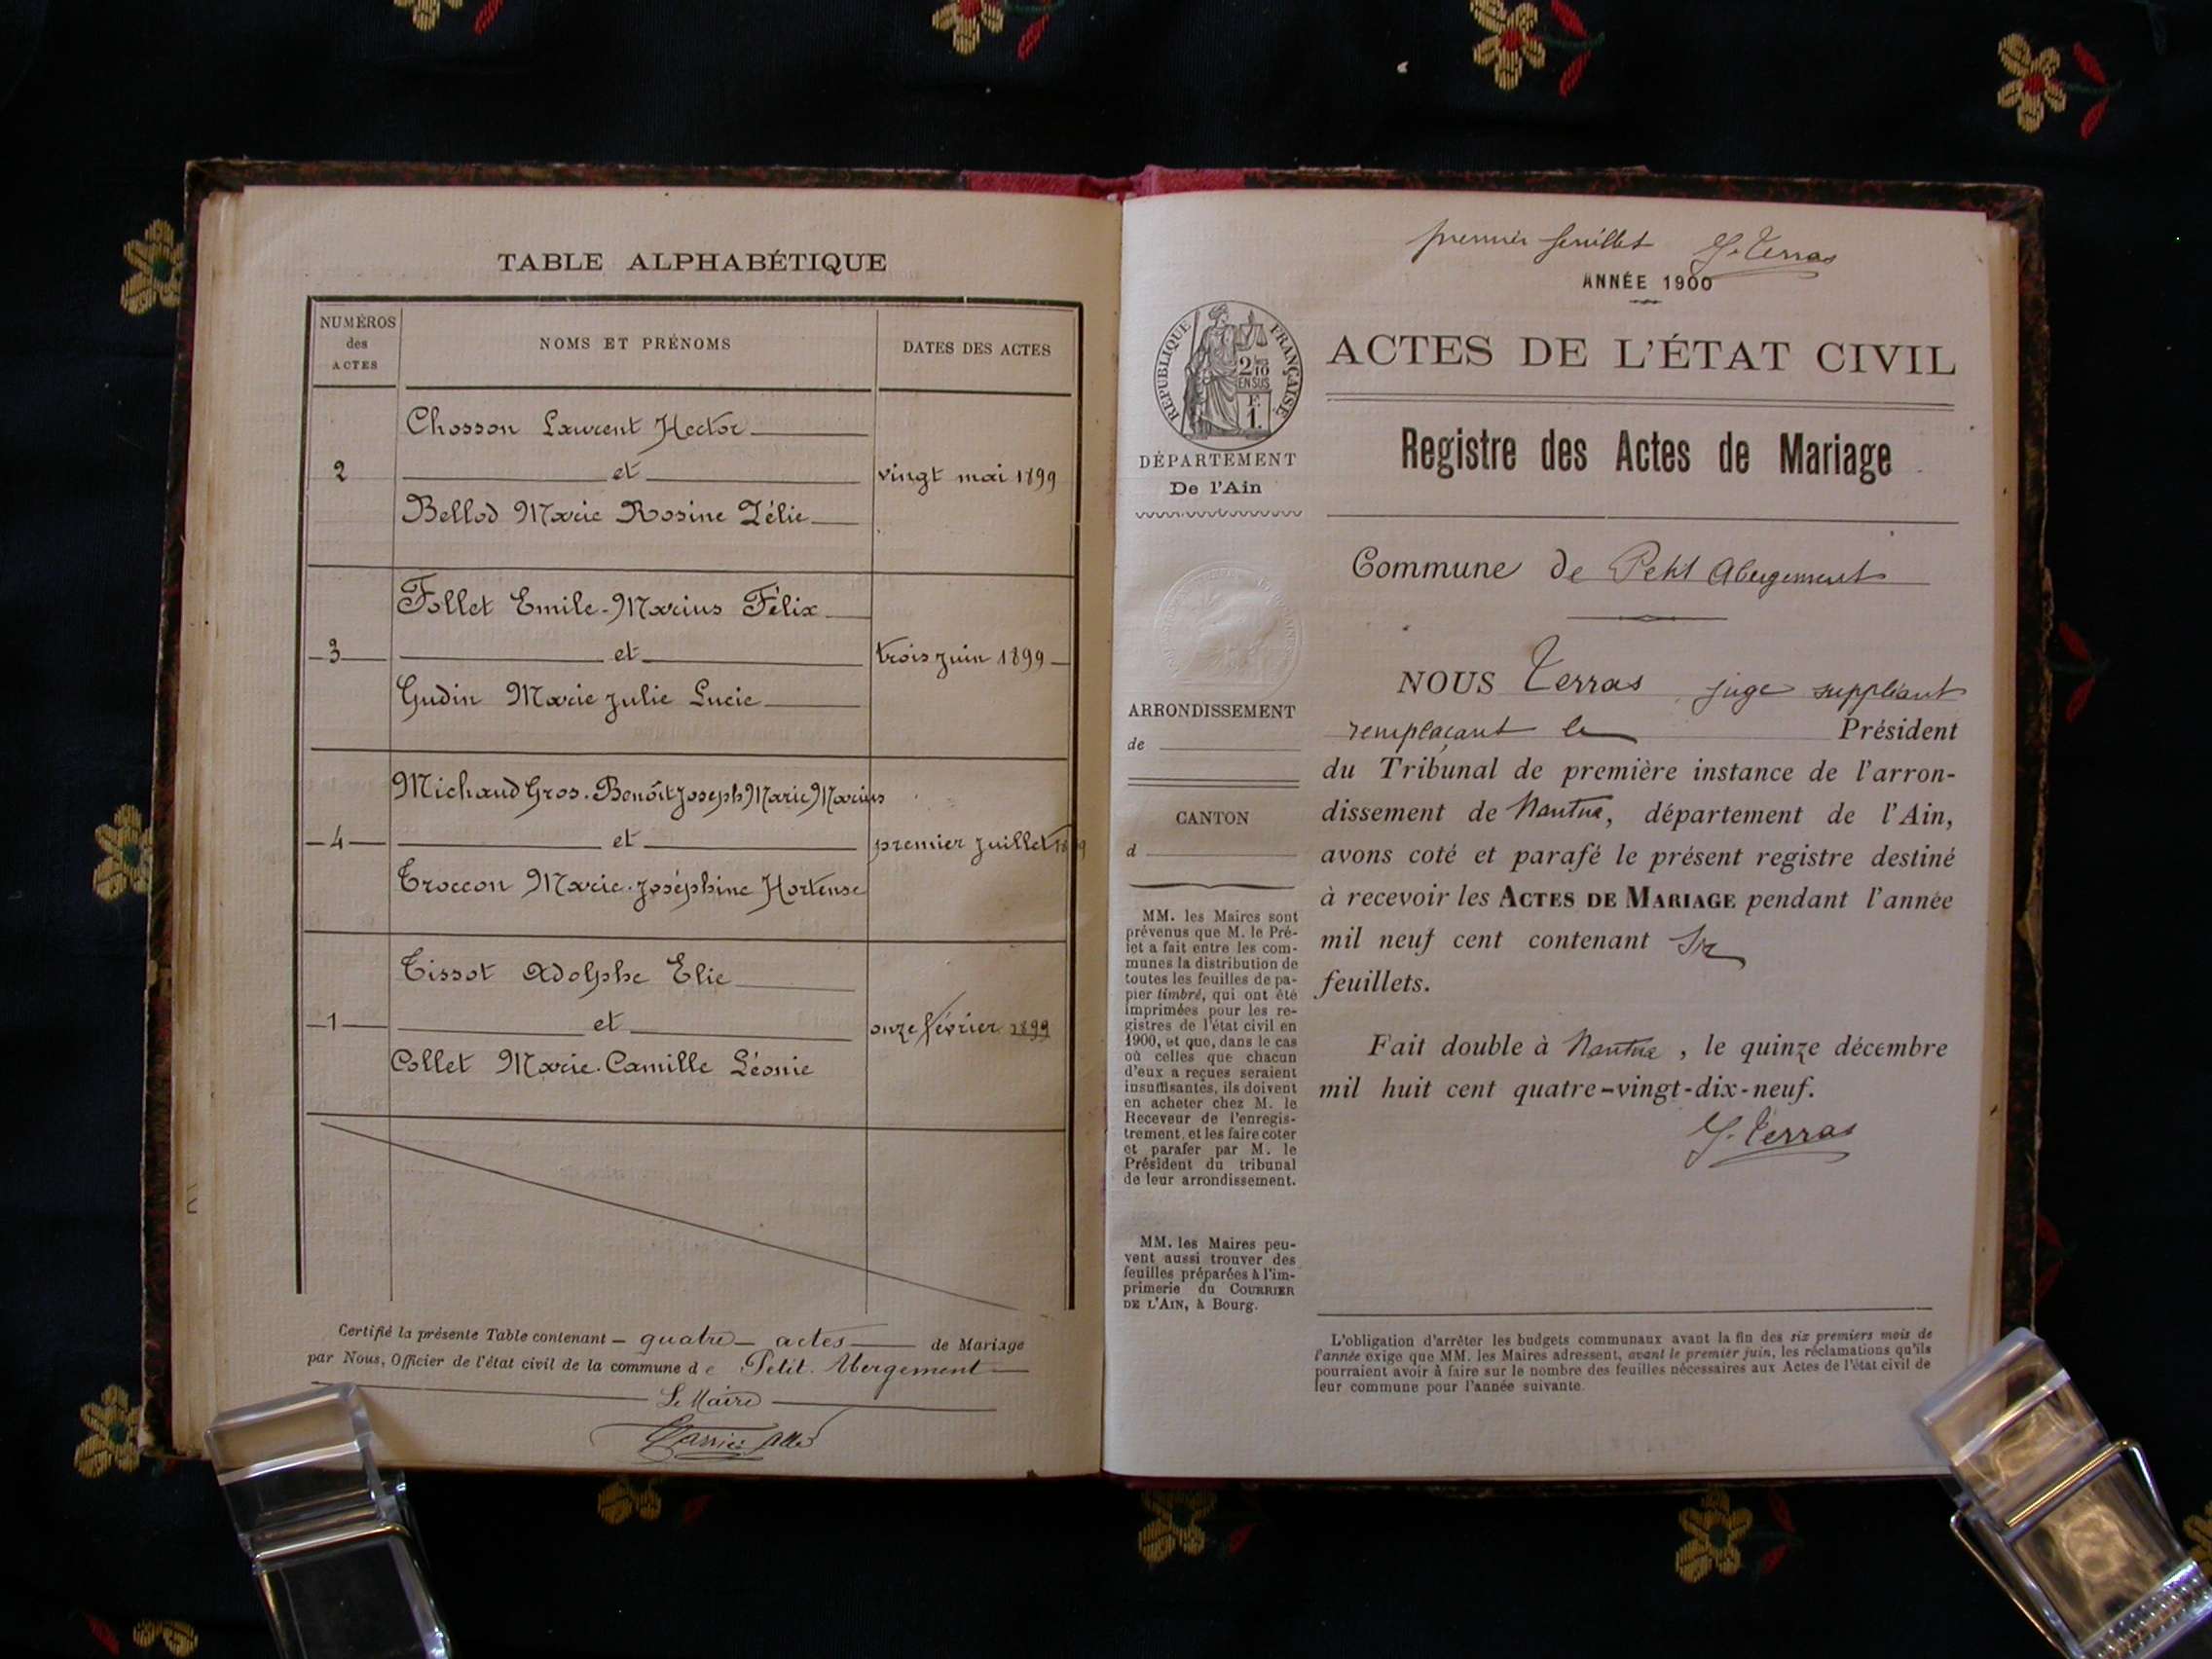 TABLE ALPHABÉTIQUE
NUMÉROS
des
ACTES
NOMS ET PRÉNOMS
DATES DES ACTES
Chosson Laurent Hector
2
et
vingt mai 1899
Bellod Marie Rosine Zélie
Follet Emile-Marius Félix
3
et
trois juin 1899
Gudin Marie Julie Lucie
Michaud Gros. Benoît Joseph Marie Marius
4
et
premier juillet 1899
Troccon Marie-Joséphine Hortense
Tissot Adolphe Elie
1
et
onze février 1899
Collet Marie-Camille Léonie
Certifié la présente Table contenant quatre actes de Mariage
par Nous, Officier de l'état civil de la commune de Petit Abergement
Le Maire
premier feuillet Terras
ANNÉE 1900
RÉPUBLIQUE FRANÇAISE
2/10
EN SUS
F.
1.
ACTES DE L'ÉTAT CIVIL
DÉPARTEMENT
De l'Ain
Registre des Actes de Mariage
Commune de Petit Abergement
ARRONDISSEMENT
de
CANTON
d
MM. les Maires sont
prévenus que M. le Pré-
fet a fait entre les com-
munes la distribution de
toutes les feuilles de pa-
pier timbré, qui ont été
imprimées pour les re-
gistres de l'état civil en
1900, et que, dans le cas
où celles que chacun
d'eux a reçues seraient
insuffisantes, ils doivent
en acheter chez M. le
Receveur de l'enregis-
trement, et les faire coter
et parafer par M. le
Président du tribunal
de leur arrondissement.
MM. les Maires peu-
vent aussi trouver des
feuilles préparées à l'im-
primerie du COURRIER
DE L'AIN, à Bourg.
NOUS Terras juge suppléant
remplaçant le Président
du Tribunal de première instance de l'arron-
dissement de Nantua, département de l'Ain,
avons coté et parafé le présent registre destiné
à recevoir les ACTES DE MARIAGE pendant l'année
mil neuf cent contenant six
feuillets.
Fait double à Nantua, le quinze décembre
mil huit cent quatre-vingt-dix-neuf.
Terras
L'obligation d'arrêter les budgets communaux avant la fin des six premiers mois de
l'année exige que MM. les Maires adressent, avant le premier juin, les réclamations qu'ils
pourraient avoir à faire sur le nombre des feuilles nécessaires aux Actes de l'état civil de
leur commune pour l'année suivante.